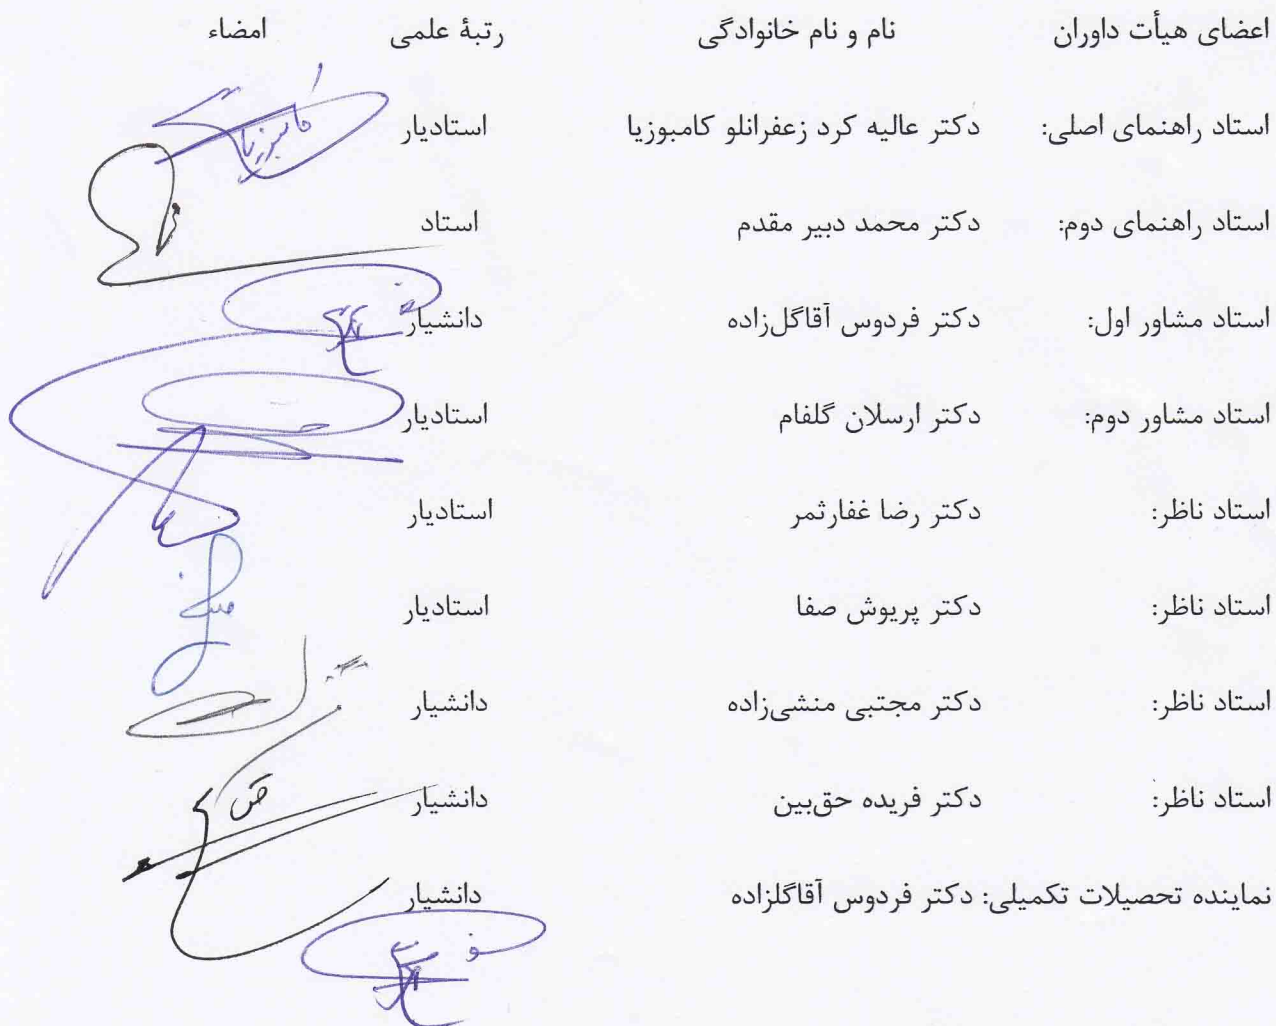 اعضای هیأت داوران نام و نام خانوادگی رتبهٔ علمی امضاء
استاد راهنمای اصلی: دکتر عالیه کرد زعفرانلو کامبوزیا استادیار
استاد راهنمای دوم: دکتر محمد دبیر مقدم استاد
استاد مشاور اول: دکتر فردوس آقاگل‌زاده دانشیار
استاد مشاور دوم: دکتر ارسلان گلفام استادیار
استاد ناظر: دکتر رضا غفارثمر استادیار
استاد ناظر: دکتر پریوش صفا استادیار
استاد ناظر: دکتر مجتبی منشی‌زاده دانشیار
استاد ناظر: دکتر فریده حق‌بین دانشیار
نماینده تحصیلات تکمیلی: دکتر فردوس آقاگلزاده دانشیار